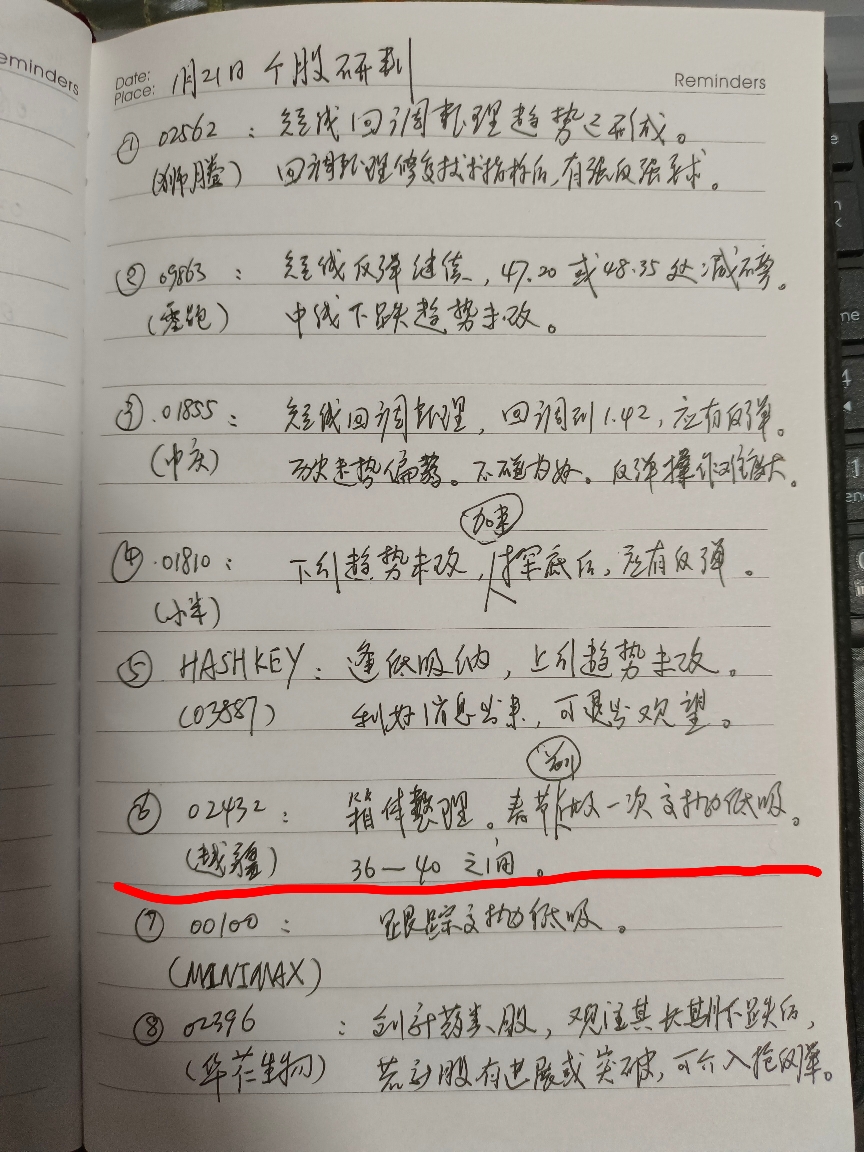 eminders
Date:
Place:
1月21日 个股研判
Reminders
① 02562 : 短线回调整理趋势已形成。
(狮腾) 回调整理修复技术指标后,有强反强需求。
② 09863 : 短线反弹继续,47.20或48.35处减
(零跑) 中线下跌趋势未改。
③ 01855 : 短线回调整理,回调到1.42,应有反弹。
(中庆) 历史走势偏弱。不碰为好。反弹操作难度大。
加速
④ 01810 : 下行趋势未改,探底后,应有反弹。
(小米)
⑤ HASHKEY : 逢低吸纳,上行趋势未改。
(03887) 利好消息出来,可退出观望。
前
⑥ 02432 : 箱体整理。春节做一次支撑位低吸。
(越疆) 36—40之间。
⑦ 00100 : 跟踪支撑位低吸。
(MINIMAX)
⑧ 02396 : 创新药类股,观注其长期下跌后,
(华芢生物) 若该股有进展或突破,可介入抢反弹。